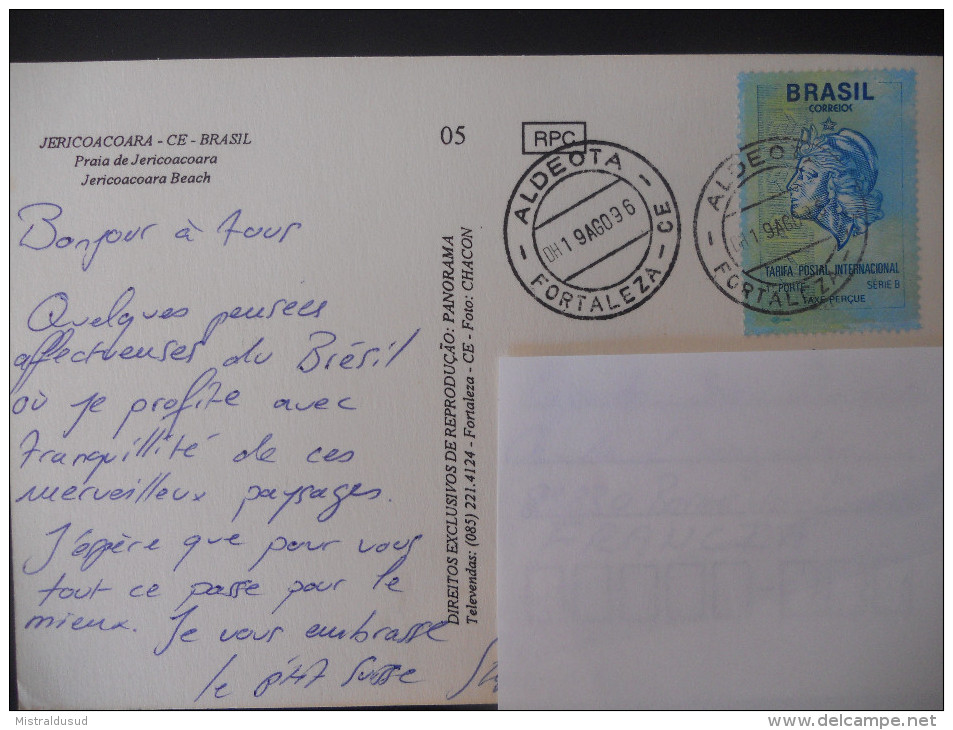 JERICOACOARA - CE - BRASIL
Praia de Jericoacoara
Jericoacoara Beach
05
RPC
ALDEOTA
DH 19AGO96
FORTALEZA - CE
BRASIL
CORREIOS
TARIFA POSTAL INTERNACIONAL
1º PORTE SÉRIE B
TAXE PERÇUE
ALDEOTA
DH 19AGO
FORTALEZA
Bonjour à tous
Quelques pensées
affectueuses du Brésil
où je profite avec
tranquillité de ces
merveilleux paysages.
J'espère que pour vous
tout ce passe pour le
mieux. Je vous embrasse
le p'tit Suisse
DIREITOS EXCLUSIVOS DE REPRODUÇÃO: PANORAMA
Televendas: (085) 221.4124 - Fortaleza - CE - Foto: CHACON
Mistraldusud
www.delcampe.net